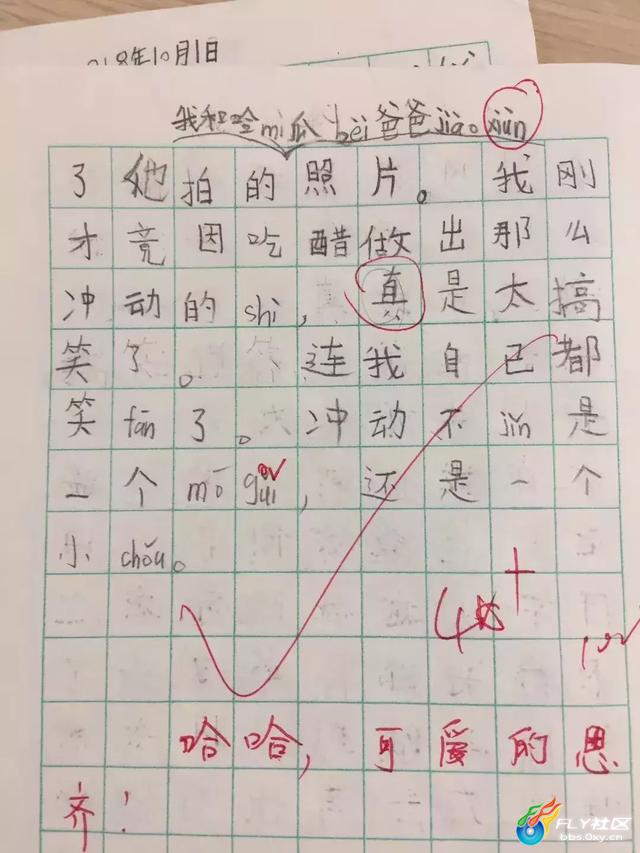 2018年10月1日
我和哈mi瓜bèi爸爸jiào xùn
了他拍的照片。我刚
才竟因吃醋做出那么
冲动的shì,真是太搞
笑了。连我自己都
笑fān了。冲动不jǐn是
一个mó guǐ,还是一个
小chǒu。
4次+
哈哈,可爱的思
齐!
FLY社区
bbs.0xy.cn